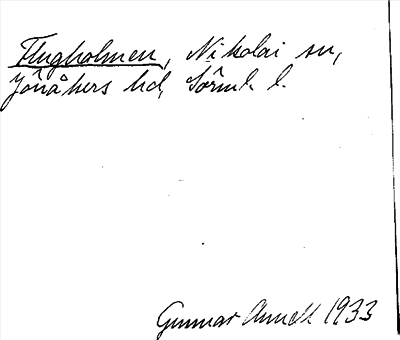 Flugholmen, Nikolai sn,
Jönåkers hd, Sörml. l.
Gunnar Annell 1933